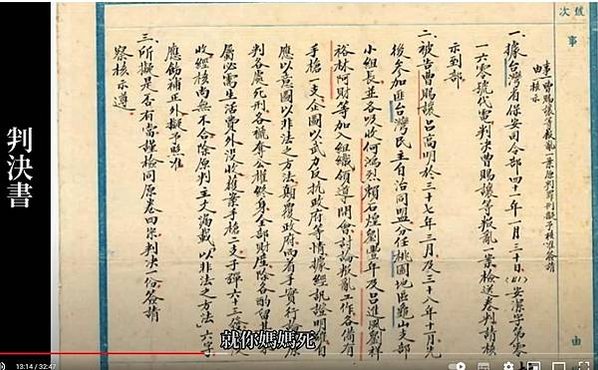 次號
事
由
一、據台灣省保安司令部四十一年一月三十日(41)安潔字第零
一六零號代電判決曹賜讓等叛亂一案檢送卷判請核
示到部
二、被告曹賜讓呂喬明於三十七年三月及三十八年十一月先
後參加匪台灣民主自治同盟分任桃園地區龜山支部
小組長並各吸收何鴻烈賴石煌劉豐年及呂進風 祥
裕林阿財等加入組織領導開會討論叛亂工作各備有
手槍一支企圖以武力反抗政府等情據經訊證明確自
應以意圖以非法之方法顛覆政府而着手實行論 原
判各處死刑各褫奪公權終身全部財產除各酌留其
屬必需生活費外沒收獲案手槍二支子彈六十三發沒
收經核尚無不合除原判主文漏載「以非法之方法」六字
應飭補正外擬予照准
三、所擬是否有當謹檢同原卷四宗判決一份簽請
察核示遵
判決書
就你媽媽死
13:14 / 32:47